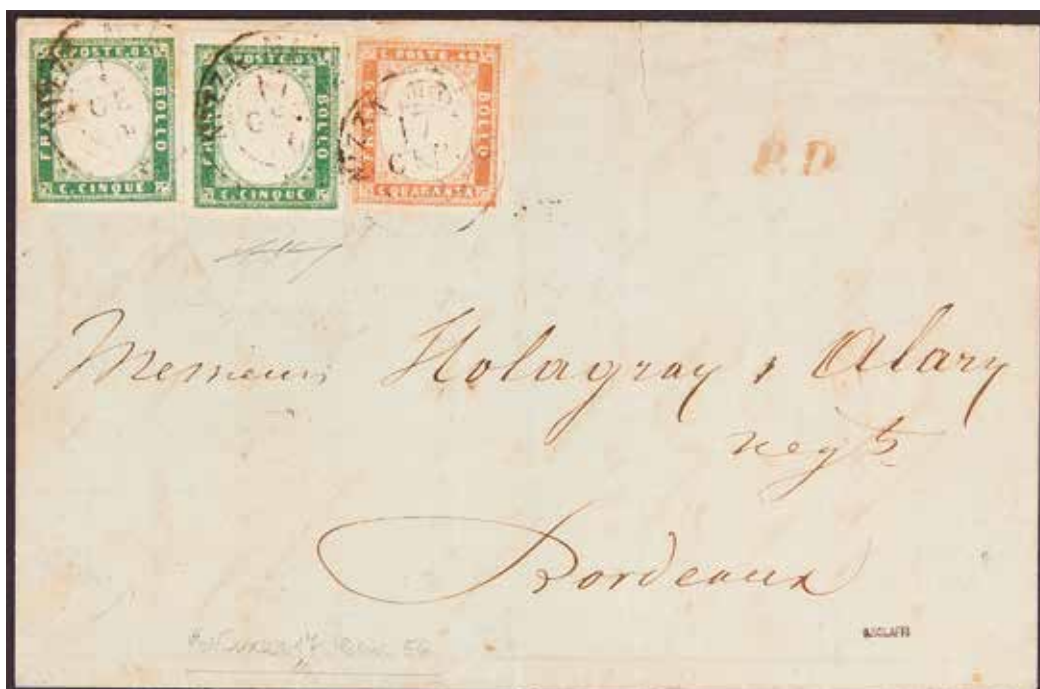 C. POSTE. 05
FRANCO
BOLLO
C. CINQUE
C. POSTE. 05
FRANCO
BOLLO
C. CINQUE
C. POSTE. 40
FRANCO
BOLLO
C. QUARANTA
NIZZA
17
GEN
P.D
Messieurs Holagray & Alary
negts
Bordeaux